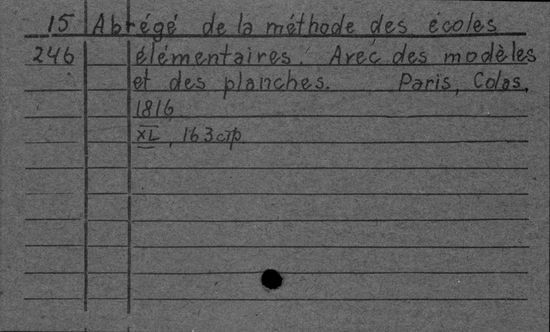 15 Abrégé de la méthode des écoles
246 élémentaires. Avec des modèles
et des planches. Paris, Colas,
1816
XL, 163 стр.